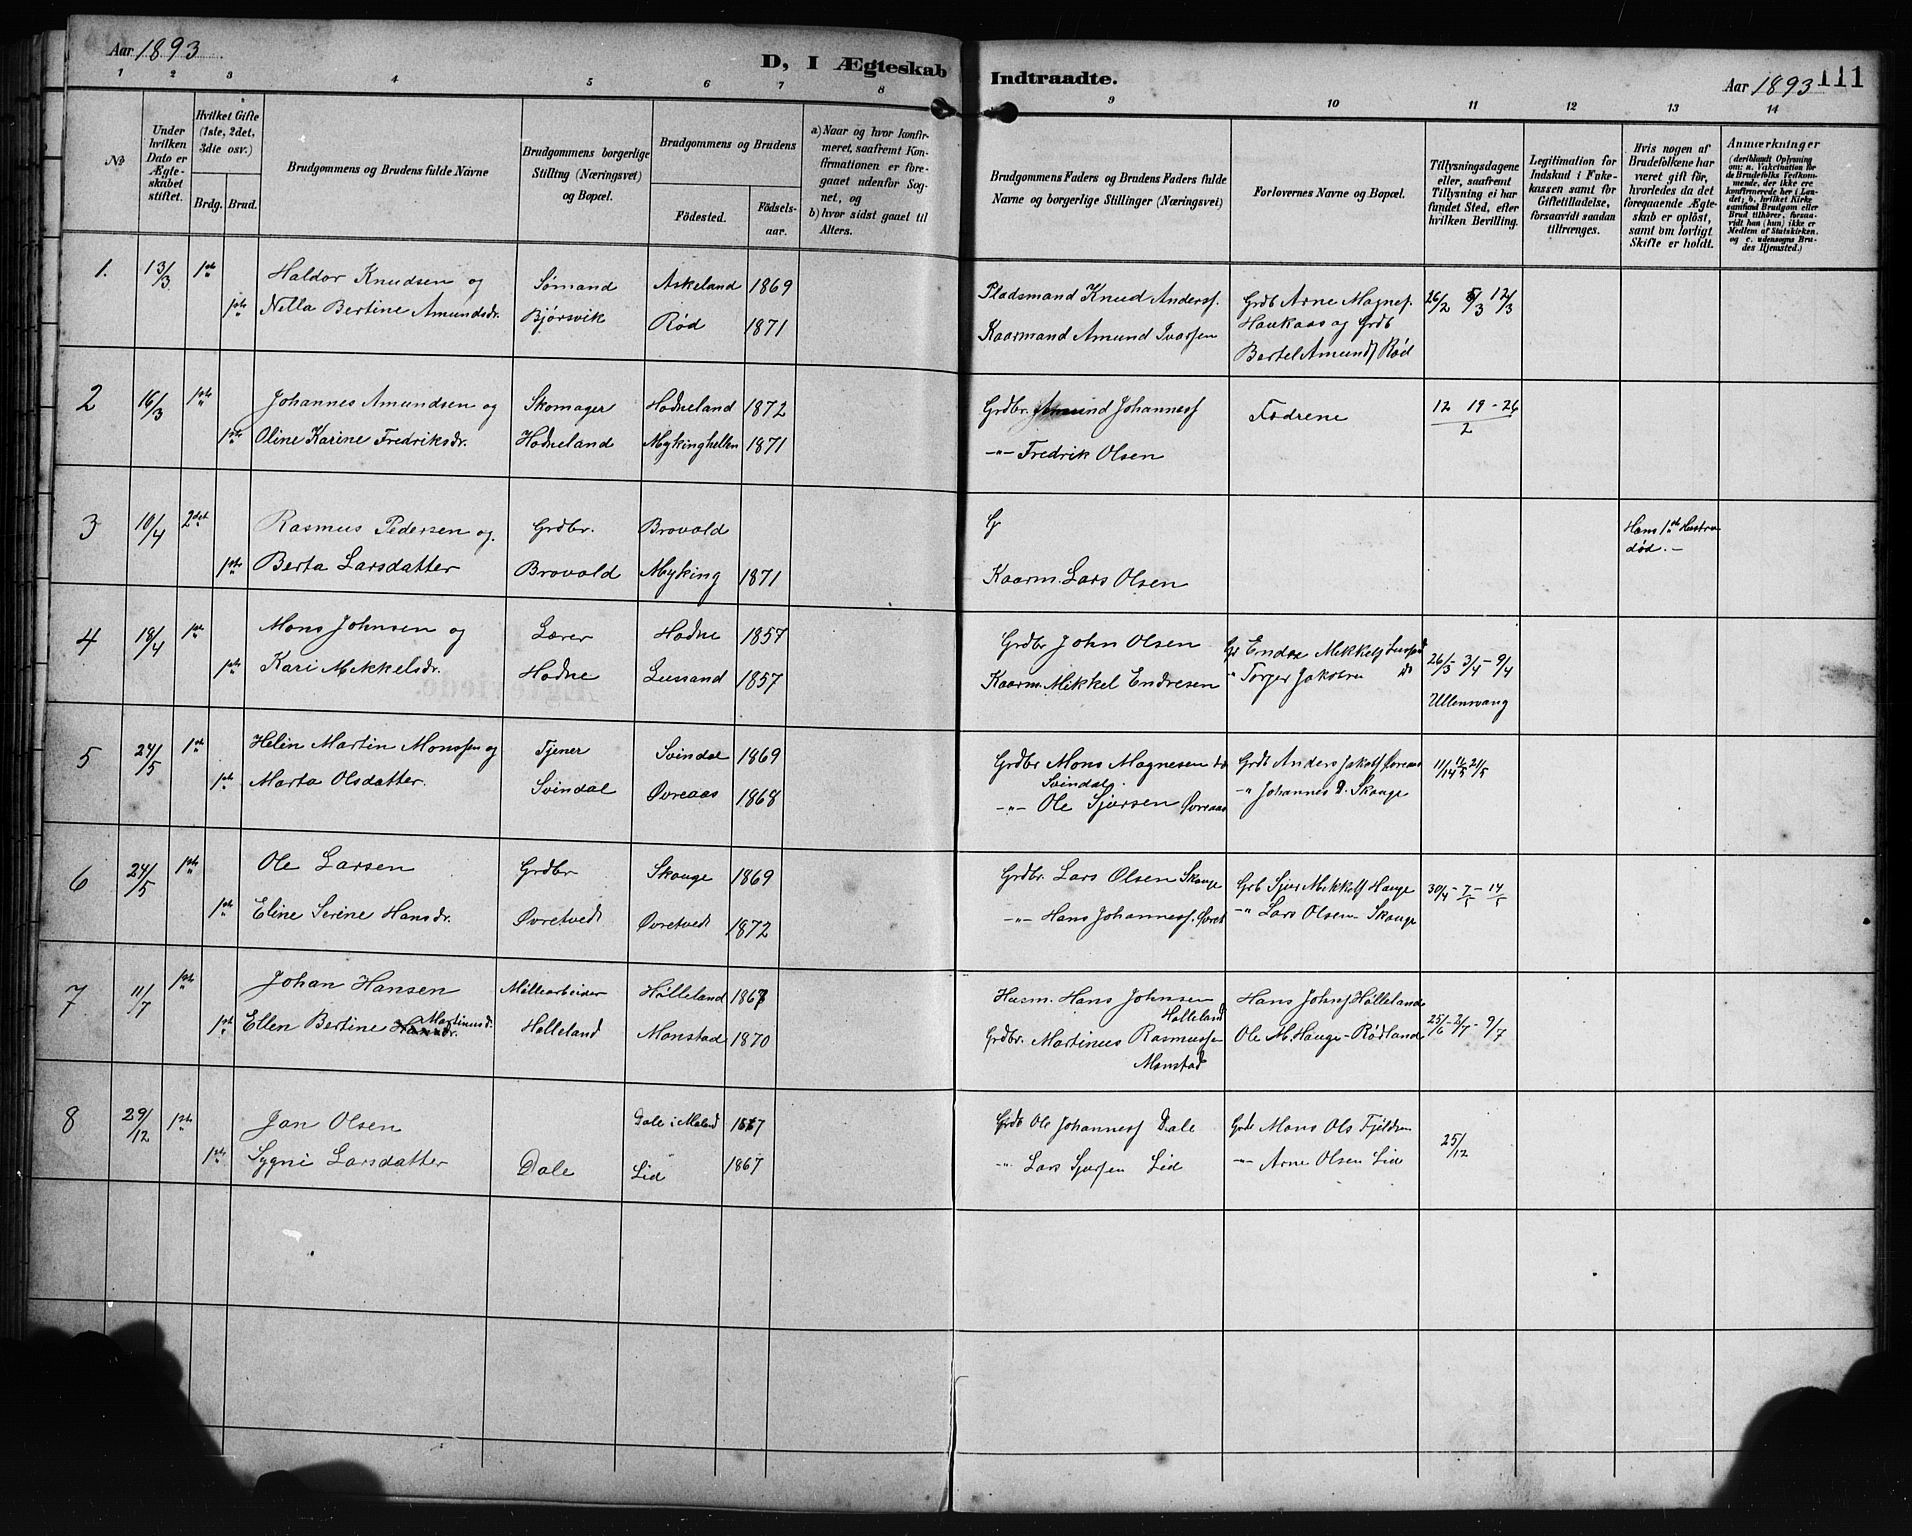 Aar 1893
D, I Ægteskab Indtraadte.
Aar 1893 111
1 2 3 4 5 6 7 8 9 10 11 12 13 14
No
Under hvilken Dato er Ægteskabet stiftet.
Hvilket Gifte (1ste, 2det, 3die osv.)
Brdg. Brud.
Brudgommens og Brudens fulde Navne
Brudgommens borgerlige Stilling (Næringsvei) og Bopæl.
Brudgommens og Brudens
Födested. Födselsaar.
a) Naar og hvor konfirmeret, saafremt Konfirmationen er foregaaet udenfor Sognet, og
b) hvor sidst gaaet til Alters.
Brudgommens Faders og Brudens Faders fulde Navne og borgerlige Stillinger (Næringsvei)
Forlovernes Navne og Bopæl.
Tillysningsdagene eller, saafremt Tillysning ei har fundet Sted, efter hvilken Bevilling.
Legitimation for Indskud i Enkekassen samt for Giftetilladelse, forsaavidt saadan tiltrænges.
Hvis nogen af Brudefolkene har været gift før, hvorledes da det foregaaende Ægteskab er opløst, samt om lovligt Skifte er holdt.
Anmærkninger
1. 13/3 1ste Haldor Knudsen og Sømand Askeland 1869 Pladsmand Knud Anderss. Grdb Arne Magness. 26/2 5/3 12/3
1ste Nella Bertine Amundsdr. Bjørsvik Rød 1871 Kaarmand Amund Ivarssen Haukaas og Grdb
Bertel Amunds Rød
2 16/3 1ste Johannes Amundsen og Skomager Hodneland 1872 Grdbr. Amund Johanness Fædrene 12 19 - 26
2
1ste Oline Karine Fredriksdr. Hodneland Mykinghellen 1871 -"- Fredrik Olsen
3 10/4 2det Rasmus Pedersen og. Grdbr. Brovold G Hans 1ste Hustru
død. -
1ste Berta Larsdatter Brovold Myking 1871 Kaarm. Lars Olsen
4 18/4 1ste Mons Johnsen og Lærer Hodne 1857 Grdbr John Olsen Gr Endre Mikkels 26/3 3/4 - 9/4
1ste Kari Mikkelsdr. Hodne Lussand 1857 Kaarm. Mikkel Endresen " Torger Jakobsen do
Ullensvang
5 24/5 1ste Helin Martin Monssen og Tjener Svindal 1869 Grdbr Mons Magnesen Grdb Anders Jakobs Øvreaas
Svindal
1ste Marta Olsdatter. Svindal Øvreaas 1868 -"- Ole Sjursen Øvreaas -" Johannes D. Skauge
6 24/5 1ste Ole Larsen Grdbr Skauge 1869 Grdbr. Lars Olsen Skauge Grb Sjur Mikkels Hauge 30/4 - 7 - 14/5
1ste Eline Serine Hansdr. Øvretvedt Øvretvedt 1872 -"- Hans Johanness. Øvret -"- Lars Olsen Skauge
7 11/7 1ste Johan Hansen Møllearbeider Hølleland 1867 Husm. Hans Johnsen Hans Johns Hølleland
Hølleland
1ste Ellen Bertine Hansdr. Martinusd. Hølleland Monstad 1870 Grdbr. Martinus Rasmussen Ole M. Hauge - Rødland 25/6 - 2/7 - 9/7
Monstad
8 29/12 1ste Jan Olsen Dale i Mæland 1867 Grdb Ole Johanness Dale Grdb Mons Ols 25/12
1ste Sygni Larsdatter Dale Lid 1867 " Lars Sjursen Lid -"- Arne Olsen Lid